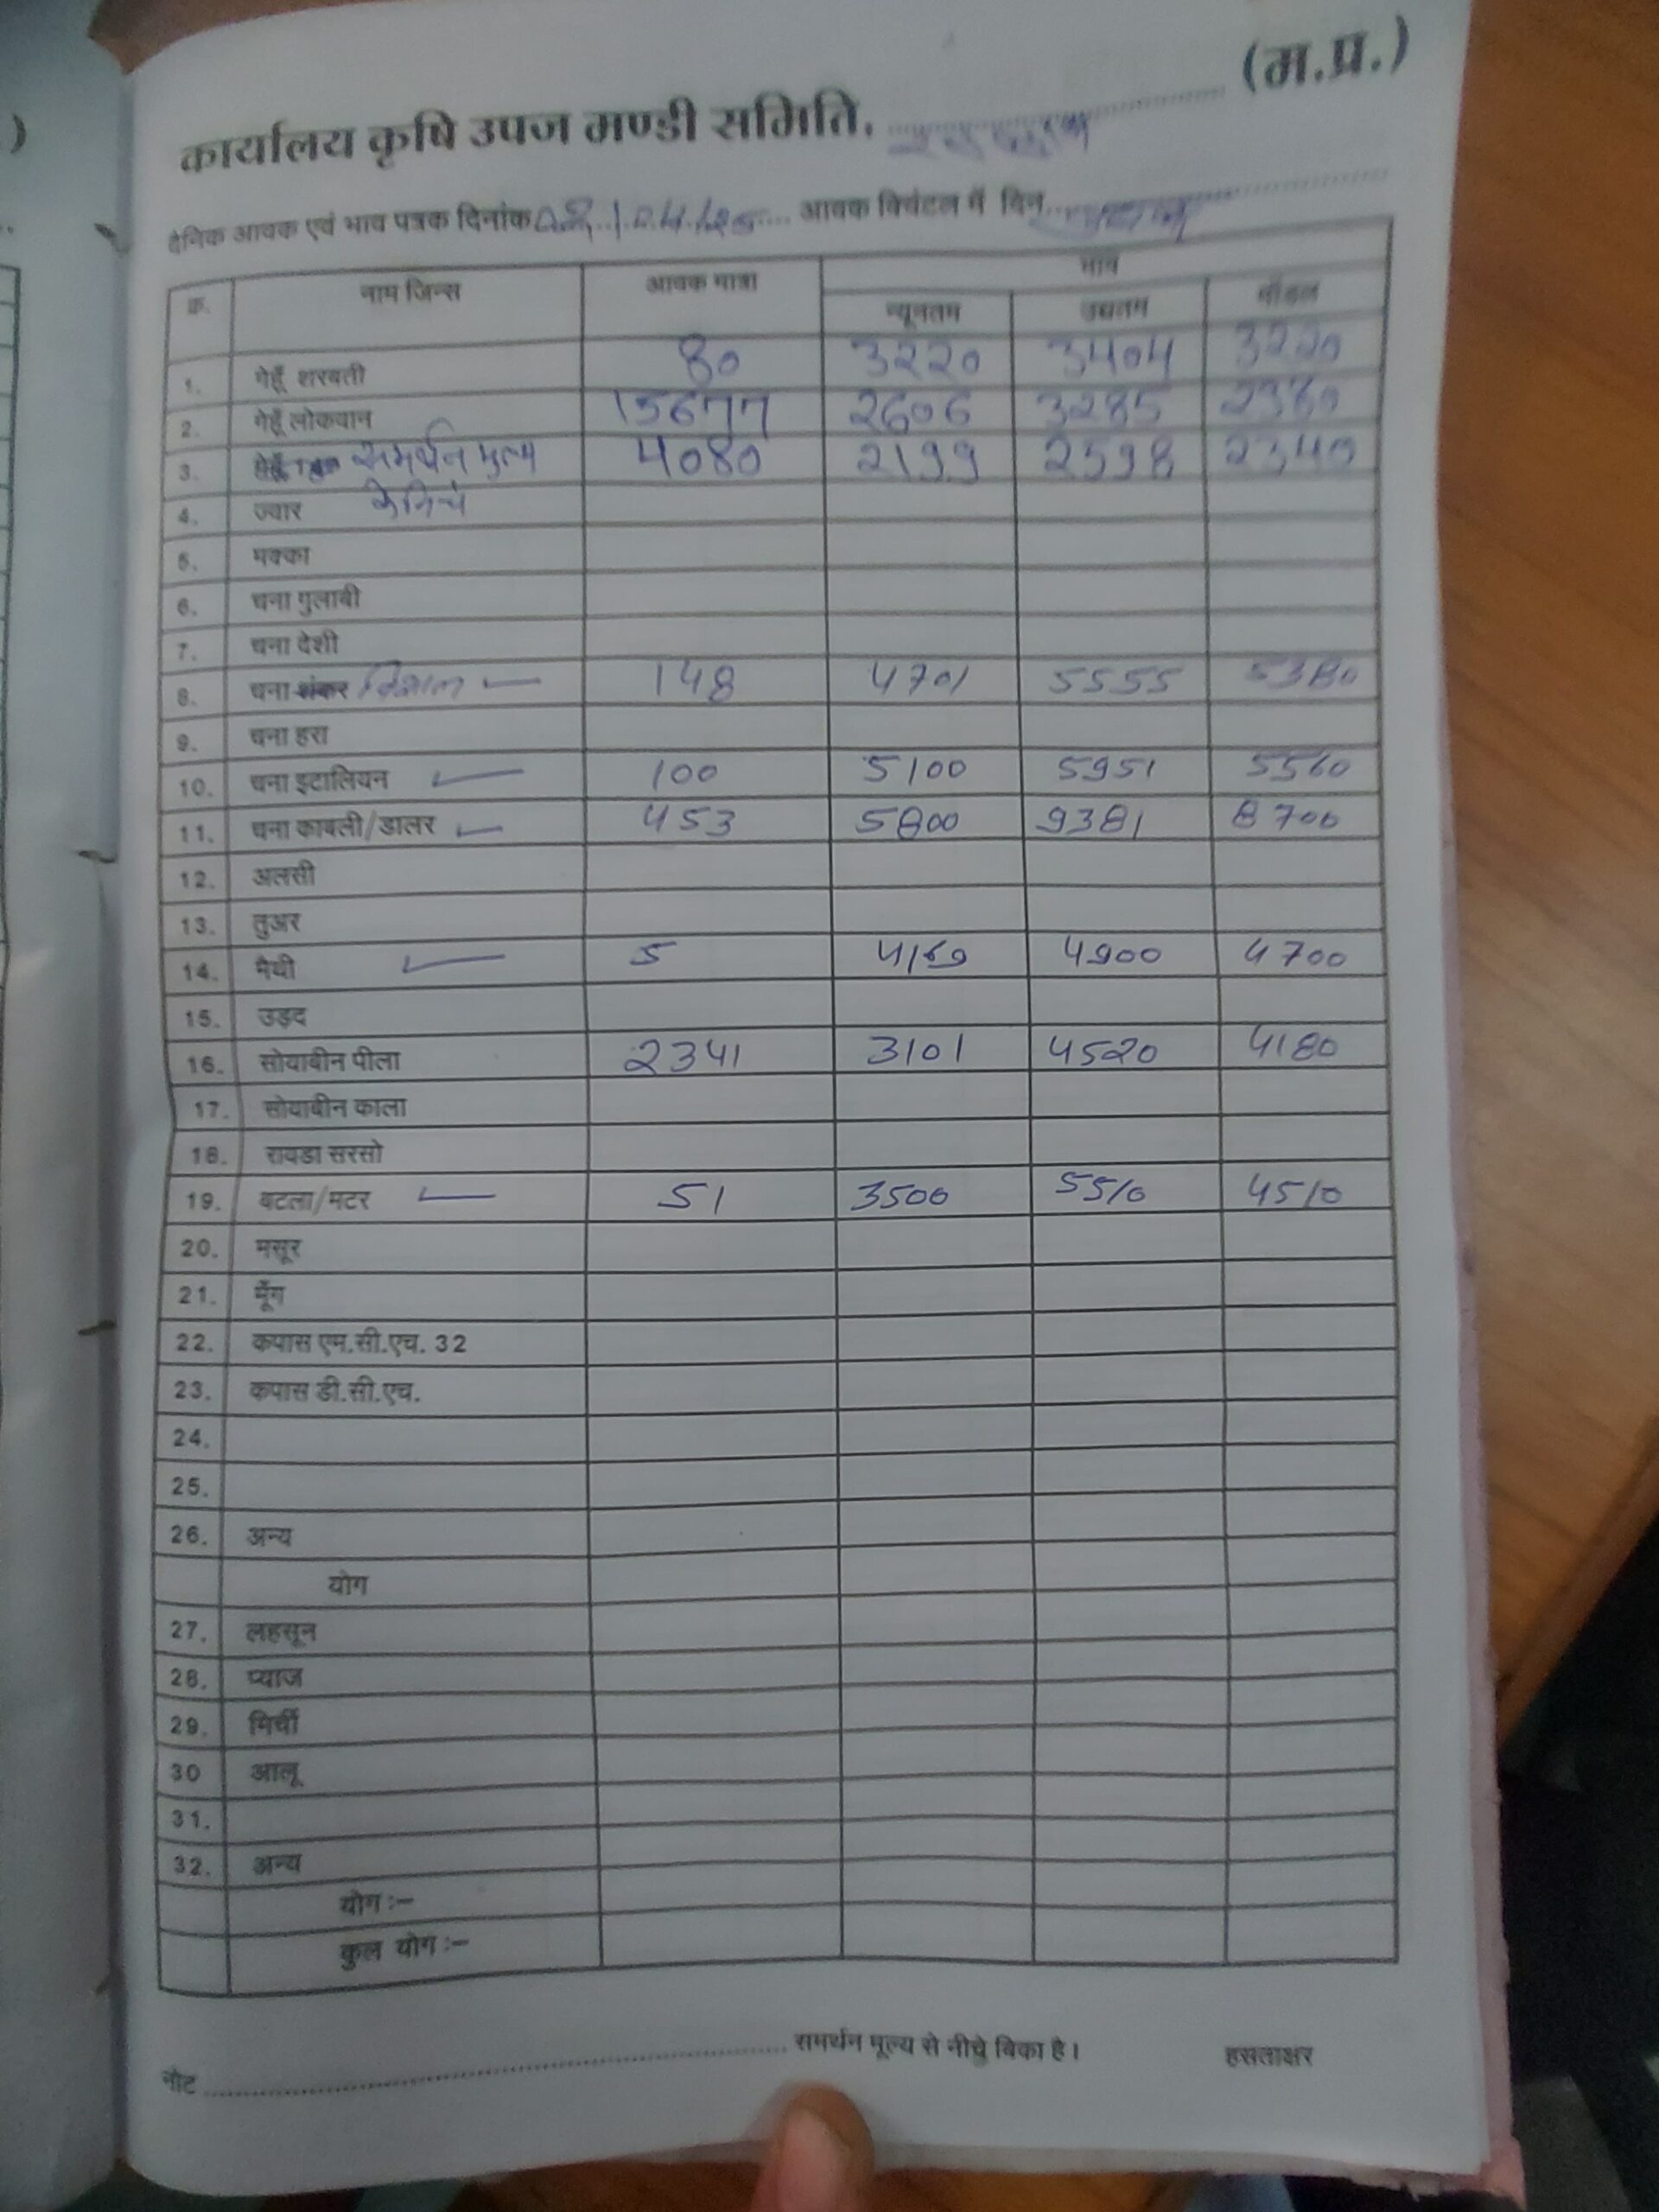 (म.प्र.)
कार्यालय कृषि उपज मण्डी समिति.
दैनिक आवक एवं भाव पत्रक दिनांक आवक क्विंटल में दिन
क्र. नाम जिन्स आवक मात्रा भाव
न्यूनतम उच्चतम मॉडल
1. गेहूँ शरबती 80 3220 3404 3220
2. गेहूँ लोकवान 15677 2606 3285
3. समर्थन मुल्य 4080 2199 2598 2340
4. ज्वार के निचे
5. मक्का
6. चना गुलाबी
7. चना देशी
8. चना शंकर विशाल 148 4701 5555 5380
9. चना हरा
10. चना इटालियन 100 5100 5951 5560
11. चना काबली/डालर 453 5800 9381 8700
12. अलसी
13. तुअर
14. मैथी 5 4169 4900 4700
15. उड़द
16. सोयाबीन पीला 2341 3101 4520 4180
17. सोयाबीन काला
18. रायडा सरसो
19. बटला/मटर 51 3500 5510 4510
20. मसूर
21. मूँग
22. कपास एम.सी.एच. 32
23. कपास डी.सी.एच.
24.
25.
26. अन्य
योग
27. लहसून
28. प्याज
29. मिर्ची
30 आलू
31.
32. अन्य
योग :–
कुल योग :–
नोट समर्थन मूल्य से नीचे बिका है।
हसताक्षर